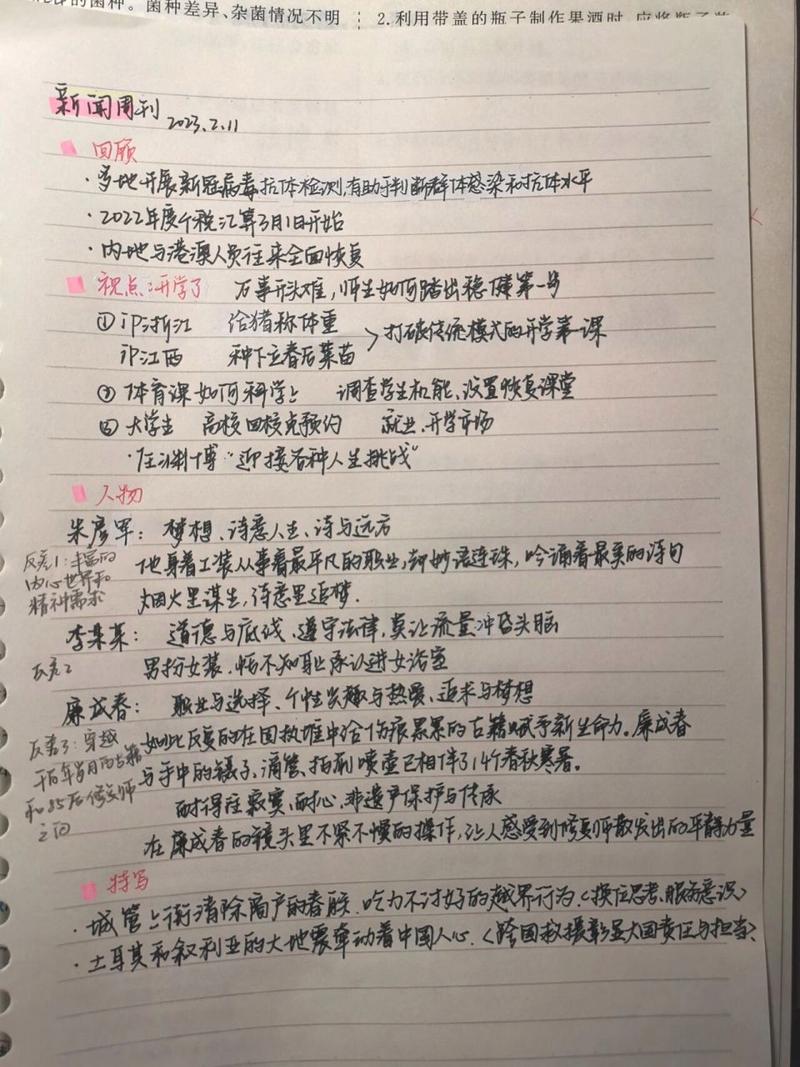 的菌种。菌种差异、杂菌情况不明
2.利用带盖的瓶子制作果酒时,应将瓶子
新闻周刊 2023.2.11
回顾
·多地开展新冠病毒抗体检测,有助于判断群体感染和抗体水平
·2022年度个税汇算3月1日开始
·内地与港澳人员往来全面恢复
视点:开学了 万事开头难,师生如何踏出稳健第一步
① iP浙江 给猪称体重
iP江西 种下立春后菜苗
打破传统模式的开学第一课
② 体育课如何科学上 调查学生机能、设置恢复课堂
④ 大学生 高校回校免预约 就业、开学市场
·汪渊博“迎接各种人生挑战”
人物
朱彦军: 梦想、诗意人生、诗与远方
反差1:丰富的
内心世界和
精神需求
他身着工装从事着最平凡的职业,却妙语连珠,吟诵着最美的诗句
烟火里谋生,诗意里追梦.
李某某: 道德与底线、遵守法律,莫让流量冲昏头脑
反差2
男扮女装、恬不知耻承认进女浴室
廉成春: 职业与选择、个性兴趣与热爱、追求与梦想
反差3:穿越
千百年岁月的古籍
和85后修文师
之间
如此反复的在固救堆中给伤痕累累的古籍赋予新生命力。廉成春
与手中的镊子、滴管、排刷喷壶已相伴了14个春秋寒暑。
耐得住寂寞、耐心、非遗产保护与传承
在廉成春的镜头里不紧不慢的操作,让人感受到修复师散发出的平静力量
特写
·城管上街清除商户的春联.吃力不讨好的越界行为.<换位思考、服务意识>
·土耳其和叙利亚的大地震牵动着中国人心.<跨国救援彰显大国责任与担当>